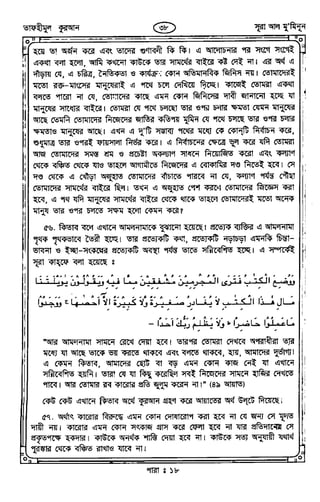 তাফহীমুল কুরআন ৩৮ সূরা আল মু'মিনূন
হয়ে তা অর্জন করে এবং তাদের গুণাবলী কি কি। এ আলোচনার পর সংগে সংগেই
একথা বলা হলো, আমি কখনো কাউকে তার সামর্থের বাইরে কষ্ট দেই না। এর অর্থ এ
দাঁড়ায় যে, এ চরিত্র, নৈতিকতা ও কার্যক্রম কোন অতিমানবিক জিনিস নয়। তোমাদেরই
মতো রক্ত-মাংসের মানুষেরাই এ পথে চলে দেখিয়ে দিচ্ছে। কাজেই তোমরা একথা
বলতে পারো না যে, তোমাদের কাছে এমন কোন জিনিসের দাবী জানানো হচ্ছে যা
মানুষের সাধ্যের বাইরে। তোমরা যে পথে চলছো তার ওপর চলার ক্ষমতা যেমন মানুষের
আছে তেমনি তোমাদের নিজেদের জাতির কতিপয় মুমিন যে পথে চলছে তার ওপর চলার
ক্ষমতাও মানুষের আছে। এখন এ দু'টি সম্ভাব্য পথের মধ্যে কে কোনটি নির্বাচন করে,
শুধুমাত্র তার ওপরই ফায়সালা নির্ভর করে। এ নির্বাচনের ক্ষেত্রে ভুল করে যদি তোমরা
আজ তোমাদের সমস্ত শ্রম ও প্রচেষ্টা অকল্যাণ সাধনে নিয়োজিত করো এবং কল্যাণ
থেকে বঞ্চিত থেকে যাও তাহলে আগামীতে নিজেদের এ বোকামির দণ্ড নিতেই হবে। সে
দণ্ড থেকে এ খোঁড়া অজুহাত তোমাদের বাঁচাতে পারবে না যে, কল্যাণ পর্যন্ত পৌঁছা
তোমাদের সামর্থের বাইরে ছিল। তখন এ অজুহাত পেশ করলে তোমাদের জিজ্ঞেস করা
হবে, এ পথ যদি মানুষের সামর্থের বাইরে থেকে থাকে তাহলে তোমাদেরই মতো অনেক
মানুষ তার ওপর চলতে সক্ষম হলো কেমন করে।
৫৬. কিতাব বলে এখানে আমলনামাকে বুঝানো হয়েছে। প্রত্যেক ব্যক্তির এ আমলনামা
পৃথক পৃথকভাবে তৈরী হচ্ছে। তার প্রত্যেকটি কথা, প্রত্যেকটি নড়াচড়া এমনকি চিন্তা-
ভাবনা ও ইচ্ছা-সংকল্পের প্রত্যেকটি অবস্থা পর্যন্ত তাতে সন্নিবেশিত হচ্ছে। এ সম্পর্কেই
সূরা কাহফে বলা হয়েছে ঃ
وَوُضِعَ الْكِتٰبُ فَتَرَى الْمُجْرِمِيْنَ مُشْفِقِيْنَ مِمَّا فِيْهِ وَيَقُوْلُوْنَ يٰوَيْلَتَنَا
مَالِ هٰذَا الْكِتٰبِ لَا يُغَادِرُ صَغِيْرَةً وَّلَا كَبِيْرَةً اِلَّا اَحْصٰهَا ج وَوَجَدُوْا
مَاعَمِلُوْا حَاضِرًا ط وَلَا يَظْلِمُ رَبُّكَ اَحَدًا -
"আর আমলনামা সামনে রেখে দেয়া হবে। তারপর তোমরা দেখবে অপরাধীরা তার
মধ্যে যা আছে তাকে ভয় করতে থাকবে এবং বলতে থাকবে, হায়, আমাদের দুর্ভাগ্য!
এ কেমন কিতাব, আমাদের ছোট বা বড় এমন কোন কাজ নেই যা এখানে
সন্নিবেশিত হয়নি। তারা যে যা কিছু করেছিল সবই নিজেদের সামনে হাজির দেখতে
পাবে। আর তোমার রব কারোর প্রতি জুলুম করেন না।" (৪৯ আয়াত)
কেউ কেউ এখানে কিতাব অর্থে কুরআন গ্রহণ করে আয়াতের অর্থ উল্‌টে দিয়েছে।
৫৭. অর্থাৎ কারোর বিরুদ্ধে এমন কোন দোষারোপ করা হবে না যে জন্য সে মূলত
দায়ী নয়। কারোর এমন কোন সৎকাজ গ্রাস করে ফেলা হবে না যার প্রতিদানের সে
প্রকৃতপক্ষে হকদার। কাউকে অনর্থক শাস্তি দেয়া হবে না। কাউকে সত্য অনুযায়ী যথার্থ
পুরস্কার থেকে বঞ্চিত রাখাও যাবে না।
পারা ঃ ১৮